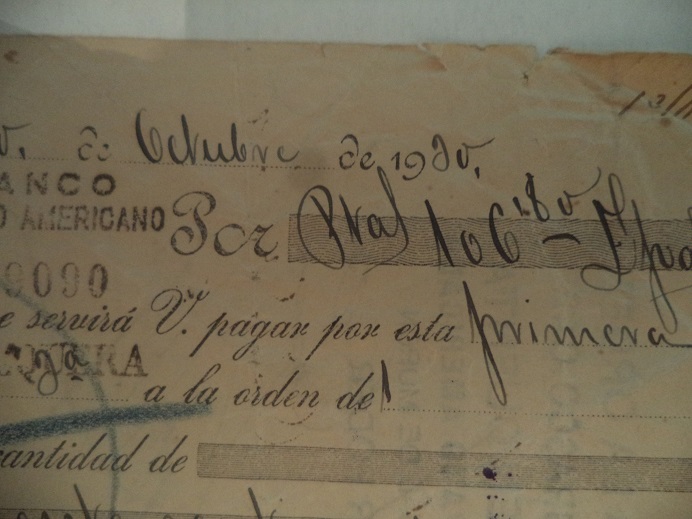 de Octubre de 1930.
ANCO
O AMERICANO Por Ptas 106'80
9090
e servirá V. pagar por esta primera
a la orden de
cantidad de